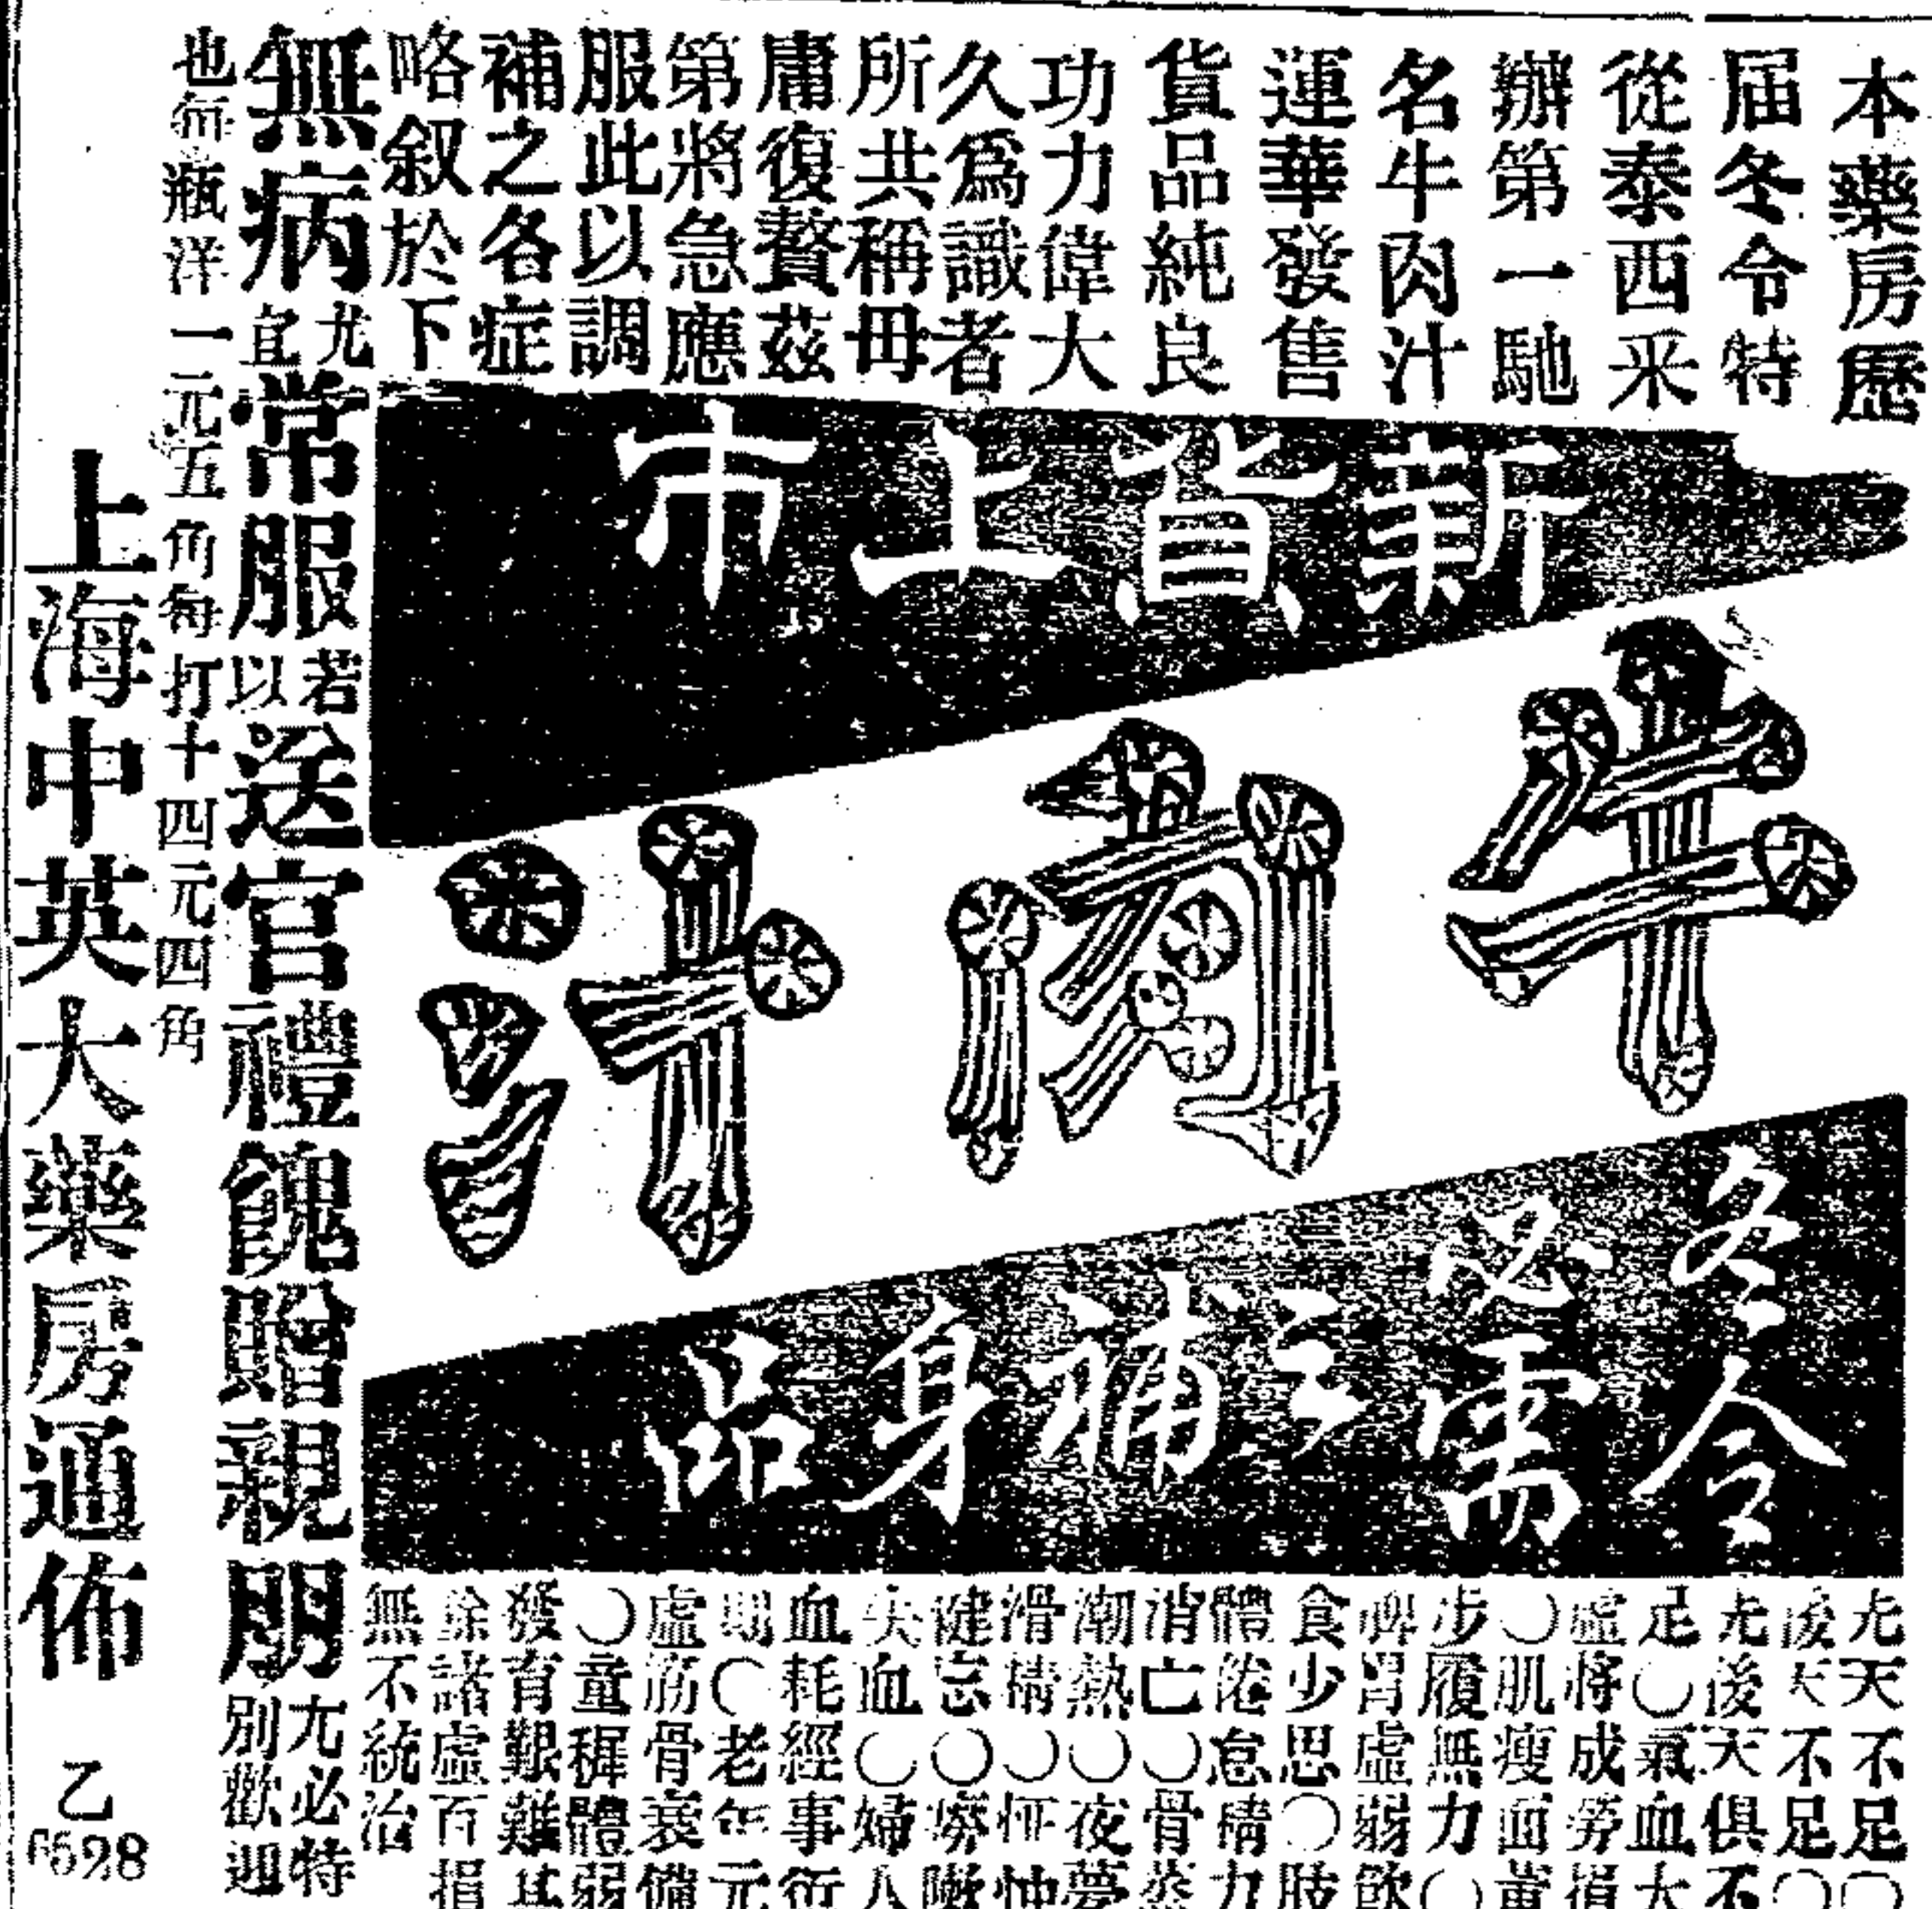 本藥房歷
屆冬令特
從泰西采
辦第一馳
名牛肉汁
運華發售
貨品純良
功力偉大
久爲識者
所共稱毋
庸復贅茲
第將急應
服此以調
補之各症
略叙於下
新貨上市
牛肉汁
冬令
必需
之補身品
先天不足〇
後天不足〇
先後天俱不
足〇氣血大
虛將成勞損
〇肌瘦面黃
步履無力〇
脾胃虛弱飲
食少思〇肢
體倦怠精力
消亡〇骨蒸
潮熱〇夜夢
滑精〇怔忡
健忘〇癆嗽
失血〇婦人
血耗經事衍
期〇老年元
虛筋骨衰憊
〇童穉體弱
發育艱難其
餘諸虛百損
無不統治
無病尤宜常服若以送官禮餽贈親朋尤必特別歡迎
也每瓶洋一元五角每打十四元四角
上海中英大藥房通佈
乙
6628